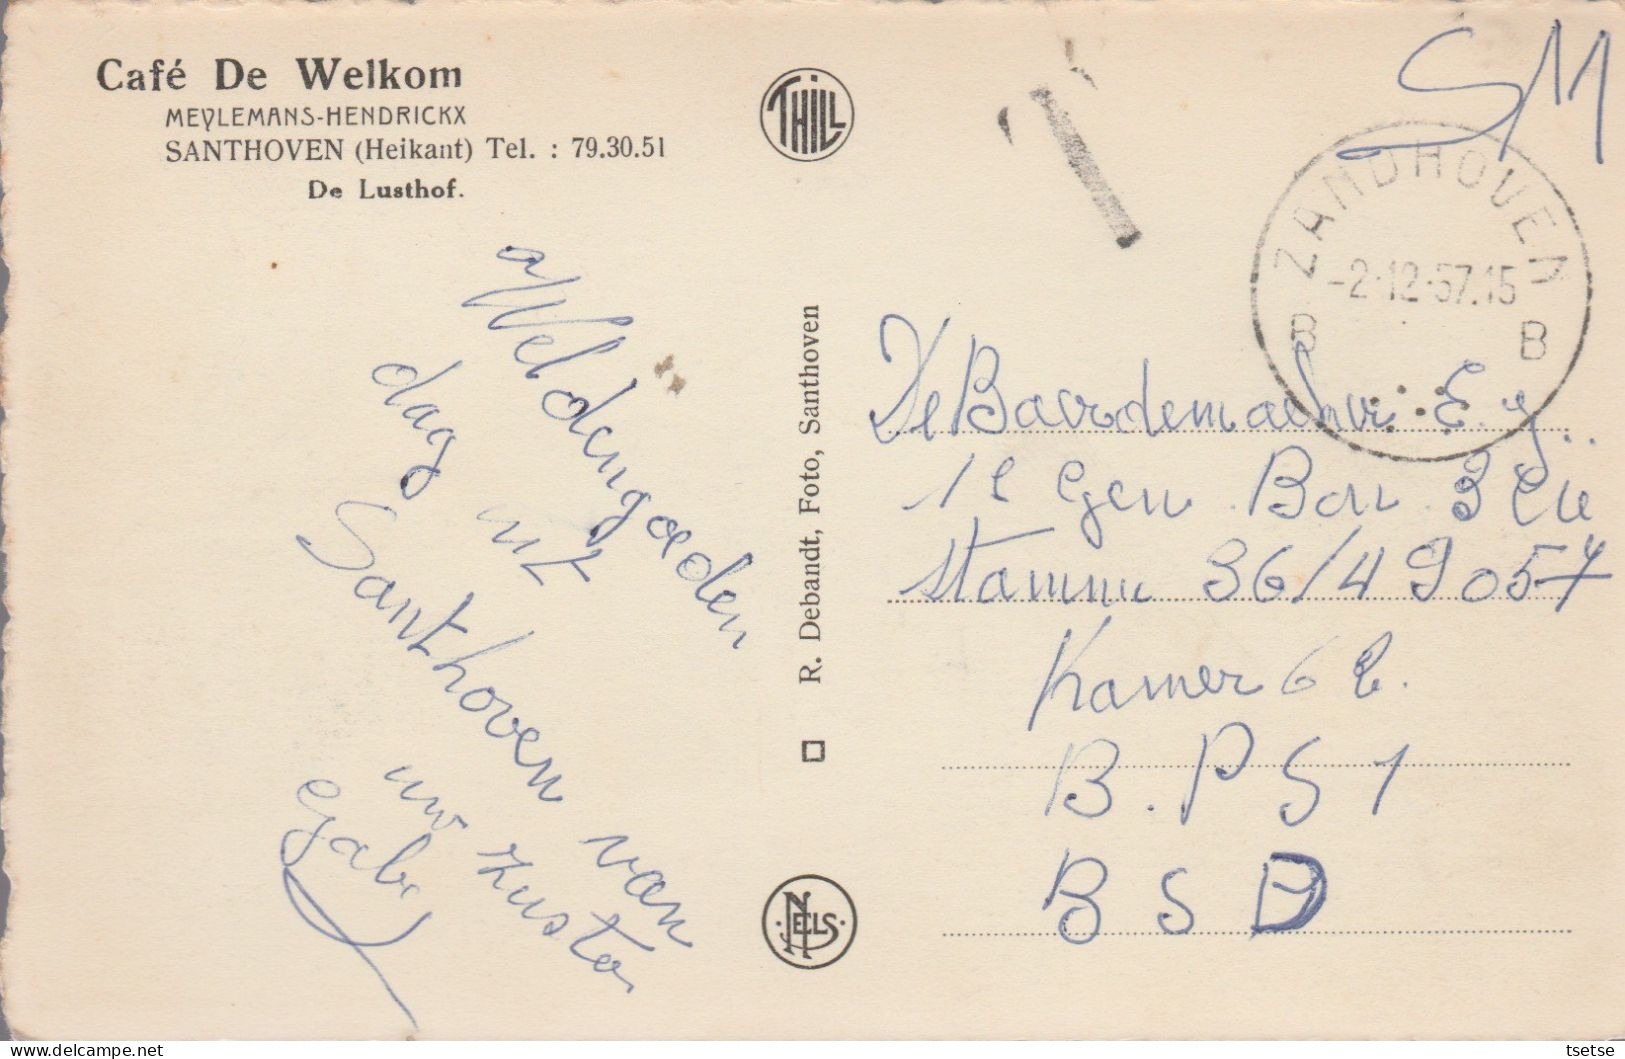 Café De Welkom
MEYLEMANS-HENDRICKX
SANTHOVEN (Heikant) Tel. : 79.30.51
De Lusthof.
THILL
T
SM
ZANDHOVEN
-2-12-57.15
B B
Weldengoeden
dag uit
Santhoven van
uw zuster
Gaby
R. Debandt, Foto, Santhoven
NELS
De Baerdemaeker E. J.
1e Gen Bon 3 Cie
stamnr 36/49057
Kamer 6 E.
B.PS 1
BSD
tsetse